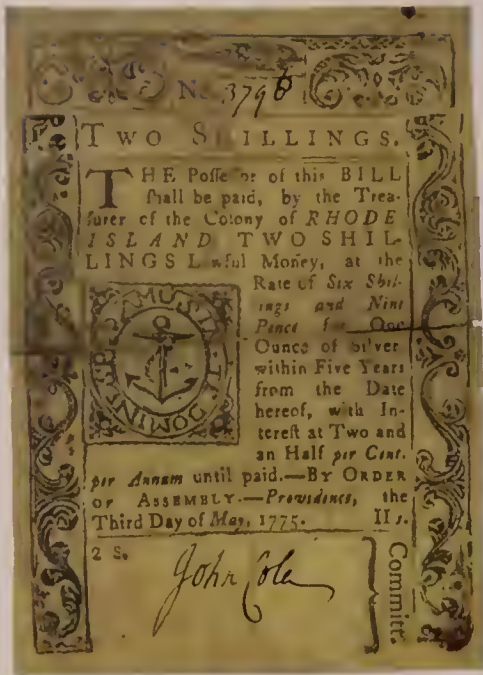 No 3796
TWO SHILLINGS.
THE Poſſeſſor of this BILL
ſhall be paid, by the Trea-
ſurer of the Colony of RHODE
ISLAND, TWO SHIL-
LINGS Lawful Money, at the
Rate of Six Shil-
ings and Nine
Pence for One
Ounce of Silver
within Five Years
from the Date
hereof, with In-
tereſt at Two and
an Half per Cent.
per Annum until paid.—BY ORDER
OF ASSEMBLY.—Providence, the
Third Day of May, 1775. II s.
IN TE DOMINE
2 S.
John Cole
Committ.